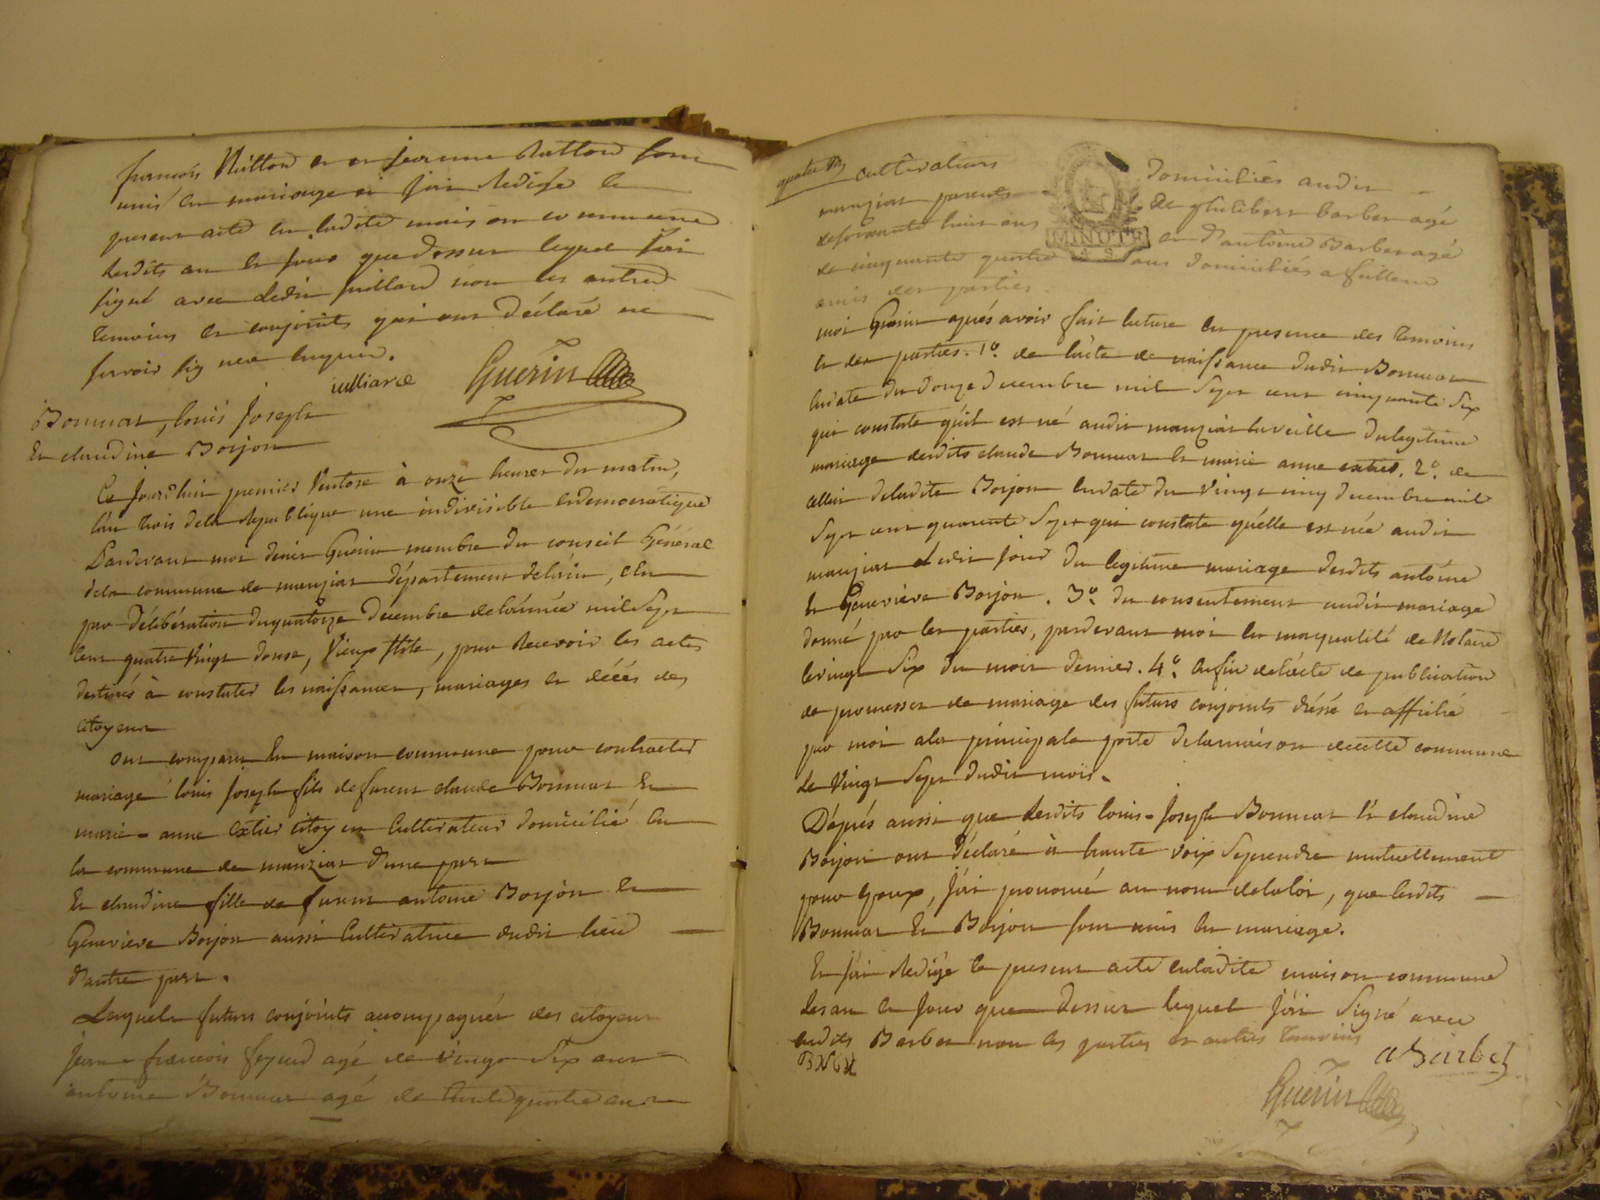 françois Rattton et en jeanne Rattton sont
unis en mariage et j'ai Redigé le
present acte en ladite maison commune
lesdits an et jour que dessus lequel j'ai
signé avec ledit juillard non les autres
temoins et conjoints qui ont déclaré ne
savoir signer enquis.
juilliard Guerin
Bonnat, louis Joseph
Et claudine Borjon
Ce Jourd'hui premier Ventose à onze heures du matin,
l'an trois dela Republique une indivisible et democratique
Pardevant moi denis Guerin membre du conseil Général
dela commune de manziat département delain, élu
par délibération du quatorze Décembre de l'année mil sept
cent quatre Vingt douze, Vieux stile, pour Recevoir les actes
destinés à constater les naissances, mariages et décés des
citoyens
ont comparu En maison commune pour contracter
mariage louis Joseph fils de furent claude Bonnat Et
marie-anne Extier citoyen Cultivateur domicilié En
la commune de manziat d'une part
Et claudine fille de furent antoine Borjon Et
Genevieve Borjon aussi Cultivatrice dudit lieu
d'autre part.
Lesquels futurs conjoints accompagnés des citoyens
jean-françois feyeud agé de vingt Six ans
antoine Bonnat agé de trente quatre ans
cultivateurs domiciliés audit
manziat parents de philibert barbet agé
de soixante huit ans et d'antoine Barbet agé
MINUTE
de cinquante quatre ans domiciliés a
amis des parties.
moi Guerin aprés avoir fait lecture en presence des temoins
et des parties. 1º. de l'acte de naissance dudit Bonnat
Endate du douze decembre mil Sept cent cinquante Six
qui constate qu'il est né audit manziat laveille du legitime
mariage desdits claude Bonnat Et marie anne extier. 2º. de
celui deladite Borjon Endate du vingt cinq decembre mil
Sept cent quarante Sept qui constate qu'elle est née audit
manziat Ledit jour du legitime mariage desdits antoine
Et Genevieve Borjon. 3º. du consentement audit mariage
donné par les parties, pardevant moi En ma qualité de Notaire
levingt Six du mois dernier. 4º. Enfin de l'acte de publication
de promesses de mariage des futurs conjoints dréssé et affiché
par moi ala principale porte delamaison decette commune
le Vingt Sept dudit mois.
D'aprés aussi que lesdits louis-Joseph Bonnat Et claudine
Borjon ont déclaré à haute voix Se prendre mutuellement
pour Epoux, J'ai prononcé au nom delaloi, que lesdits
Bonnat Et Borjon sont unis En mariage.
Et j'ai Redigé le present acte Enladite maison commune
lesan et jour que dessus lequel j'ai Signé avec
ledit Barbet non les parties et autres temoins
a Barbet
Guerin